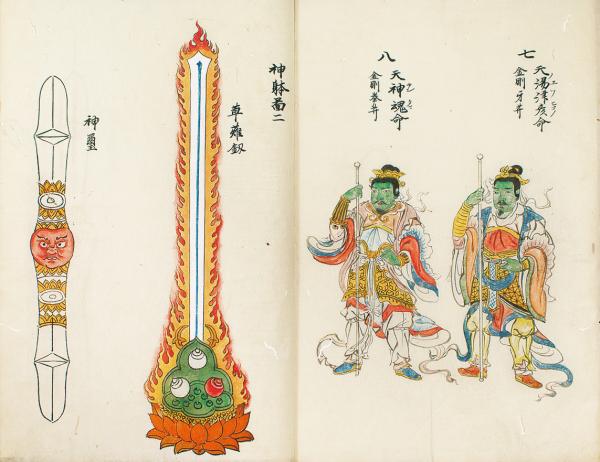 七
天湯津彦命
金剛牙𦬇
八
天神魂命
金剛拳𦬇
神躰啚二
草薙釼
神璽